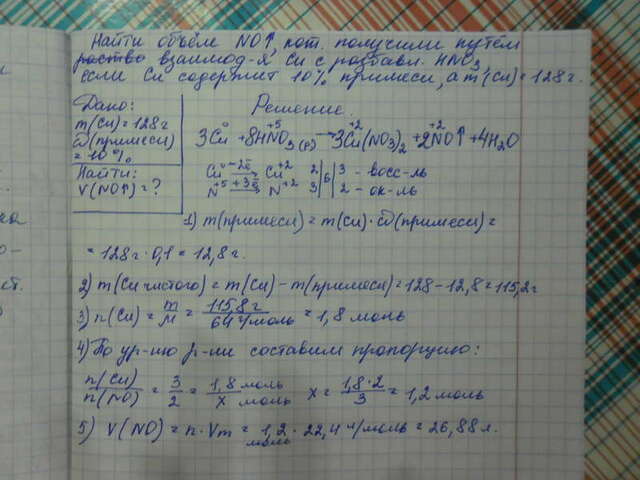 Найти объём NO↑, кот. получили путём
взаимод-я Cu с разбавл. HNO3,
если Cu содержит 10% примеси, а m(Cu)=128г.
Дано:
m(Cu)=128г
ω(примеси)
=10%
Найти:
V(NO↑)=?
Решение.
3Cu⁰ + 8HN⁺⁵O3(р) → 3Cu⁺²(NO3)2 + 2N⁺²O↑ + 4H2O
Cu⁰ −2ē → Cu⁺² 2 | 6 | 3 - восс-ль
N⁺⁵ +3ē → N⁺² 3 | | 2 - ок-ль
1) m(примеси) = m(Cu)·ω(примеси) =
= 128г·0,1 = 12,8г.
2) m(Cu чистого) = m(Cu) − m(примеси) = 128 − 12,8 = 115,2г
3) n(Cu) = m/M = 115,8г/64г/моль = 1,8 моль
4) По ур-ию р-ии составим пропорцию:
n(Cu)/n(NO) = 3/2 = 1,8 моль/x моль x = 1,8·2/3 = 1,2 моль
5) V(NO) = n·Vm = 1,2 моль · 22,4 л/моль = 26,88 л.